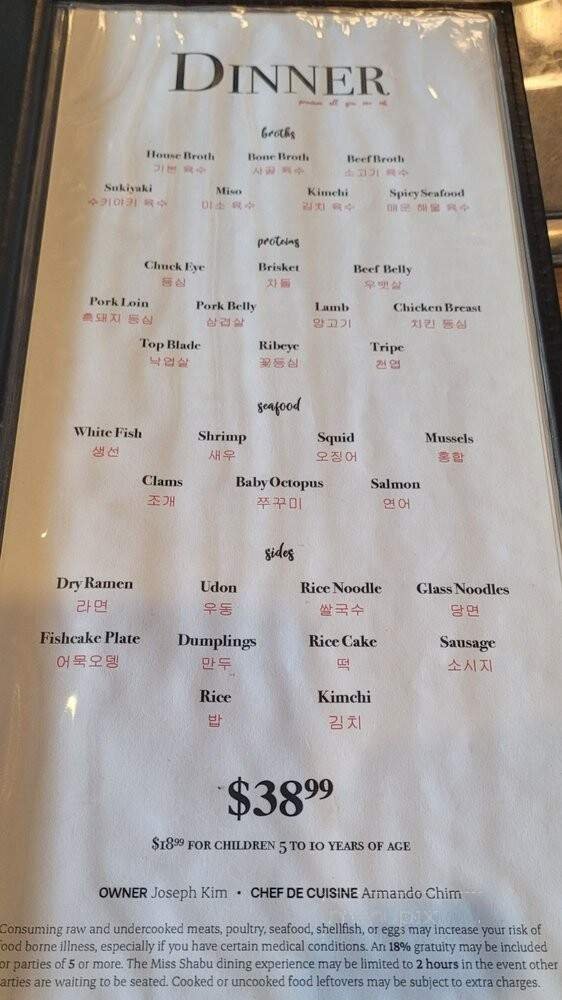 DINNER
premium all you can eat
broths
House Broth Bone Broth Beef Broth
기본 육수 사골 육수 소고기 육수
Sukiyaki Miso Kimchi Spicy Seafood
수키야키 육수 미소 육수 김치 육수 매운 해물 육수
proteins
Chuck Eye Brisket Beef Belly
등심 차돌 우뱃살
Pork Loin Pork Belly Lamb Chicken Breast
흑돼지 등심 삼겹살 양고기 치킨 등심
Top Blade Ribeye Tripe
낙엽살 꽃등심 천엽
seafood
White Fish Shrimp Squid Mussels
생선 새우 오징어 홍합
Clams Baby Octopus Salmon
조개 쭈꾸미 연어
sides
Dry Ramen Udon Rice Noodle Glass Noodles
라면 우동 쌀국수 당면
Fishcake Plate Dumplings Rice Cake Sausage
어묵오뎅 만두 떡 소시지
Rice Kimchi
밥 김치
$38⁹⁹
$18⁹⁹ FOR CHILDREN 5 TO 10 YEARS OF AGE
OWNER Joseph Kim • CHEF DE CUISINE Armando Chim
Consuming raw and undercooked meats, poultry, seafood, shellfish, or eggs may increase your risk of
food borne illness, especially if you have certain medical conditions. An 18% gratuity may be included
or parties of 5 or more. The Miss Shabu dining experience may be limited to 2 hours in the event other
arties are waiting to be seated. Cooked or uncooked food leftovers may be subject to extra charges.